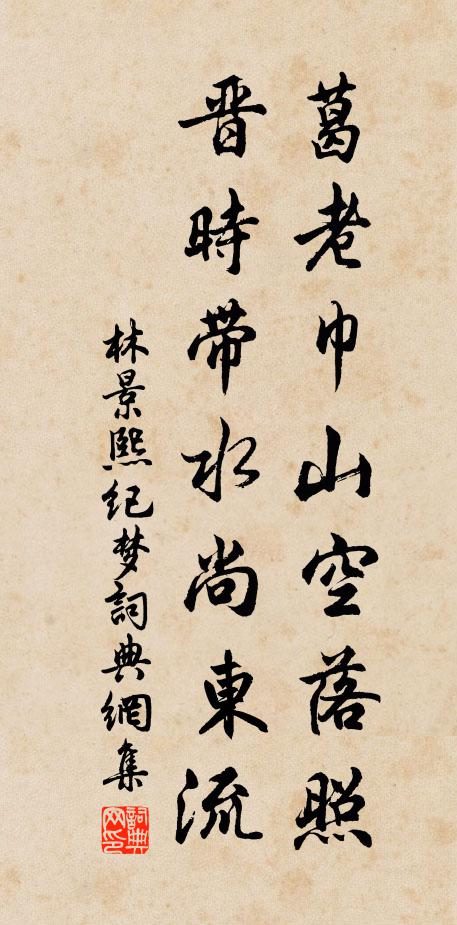 葛老巾山空落照
晋時帶水尚東流
林景熙纪梦詞典網集
詞典网印